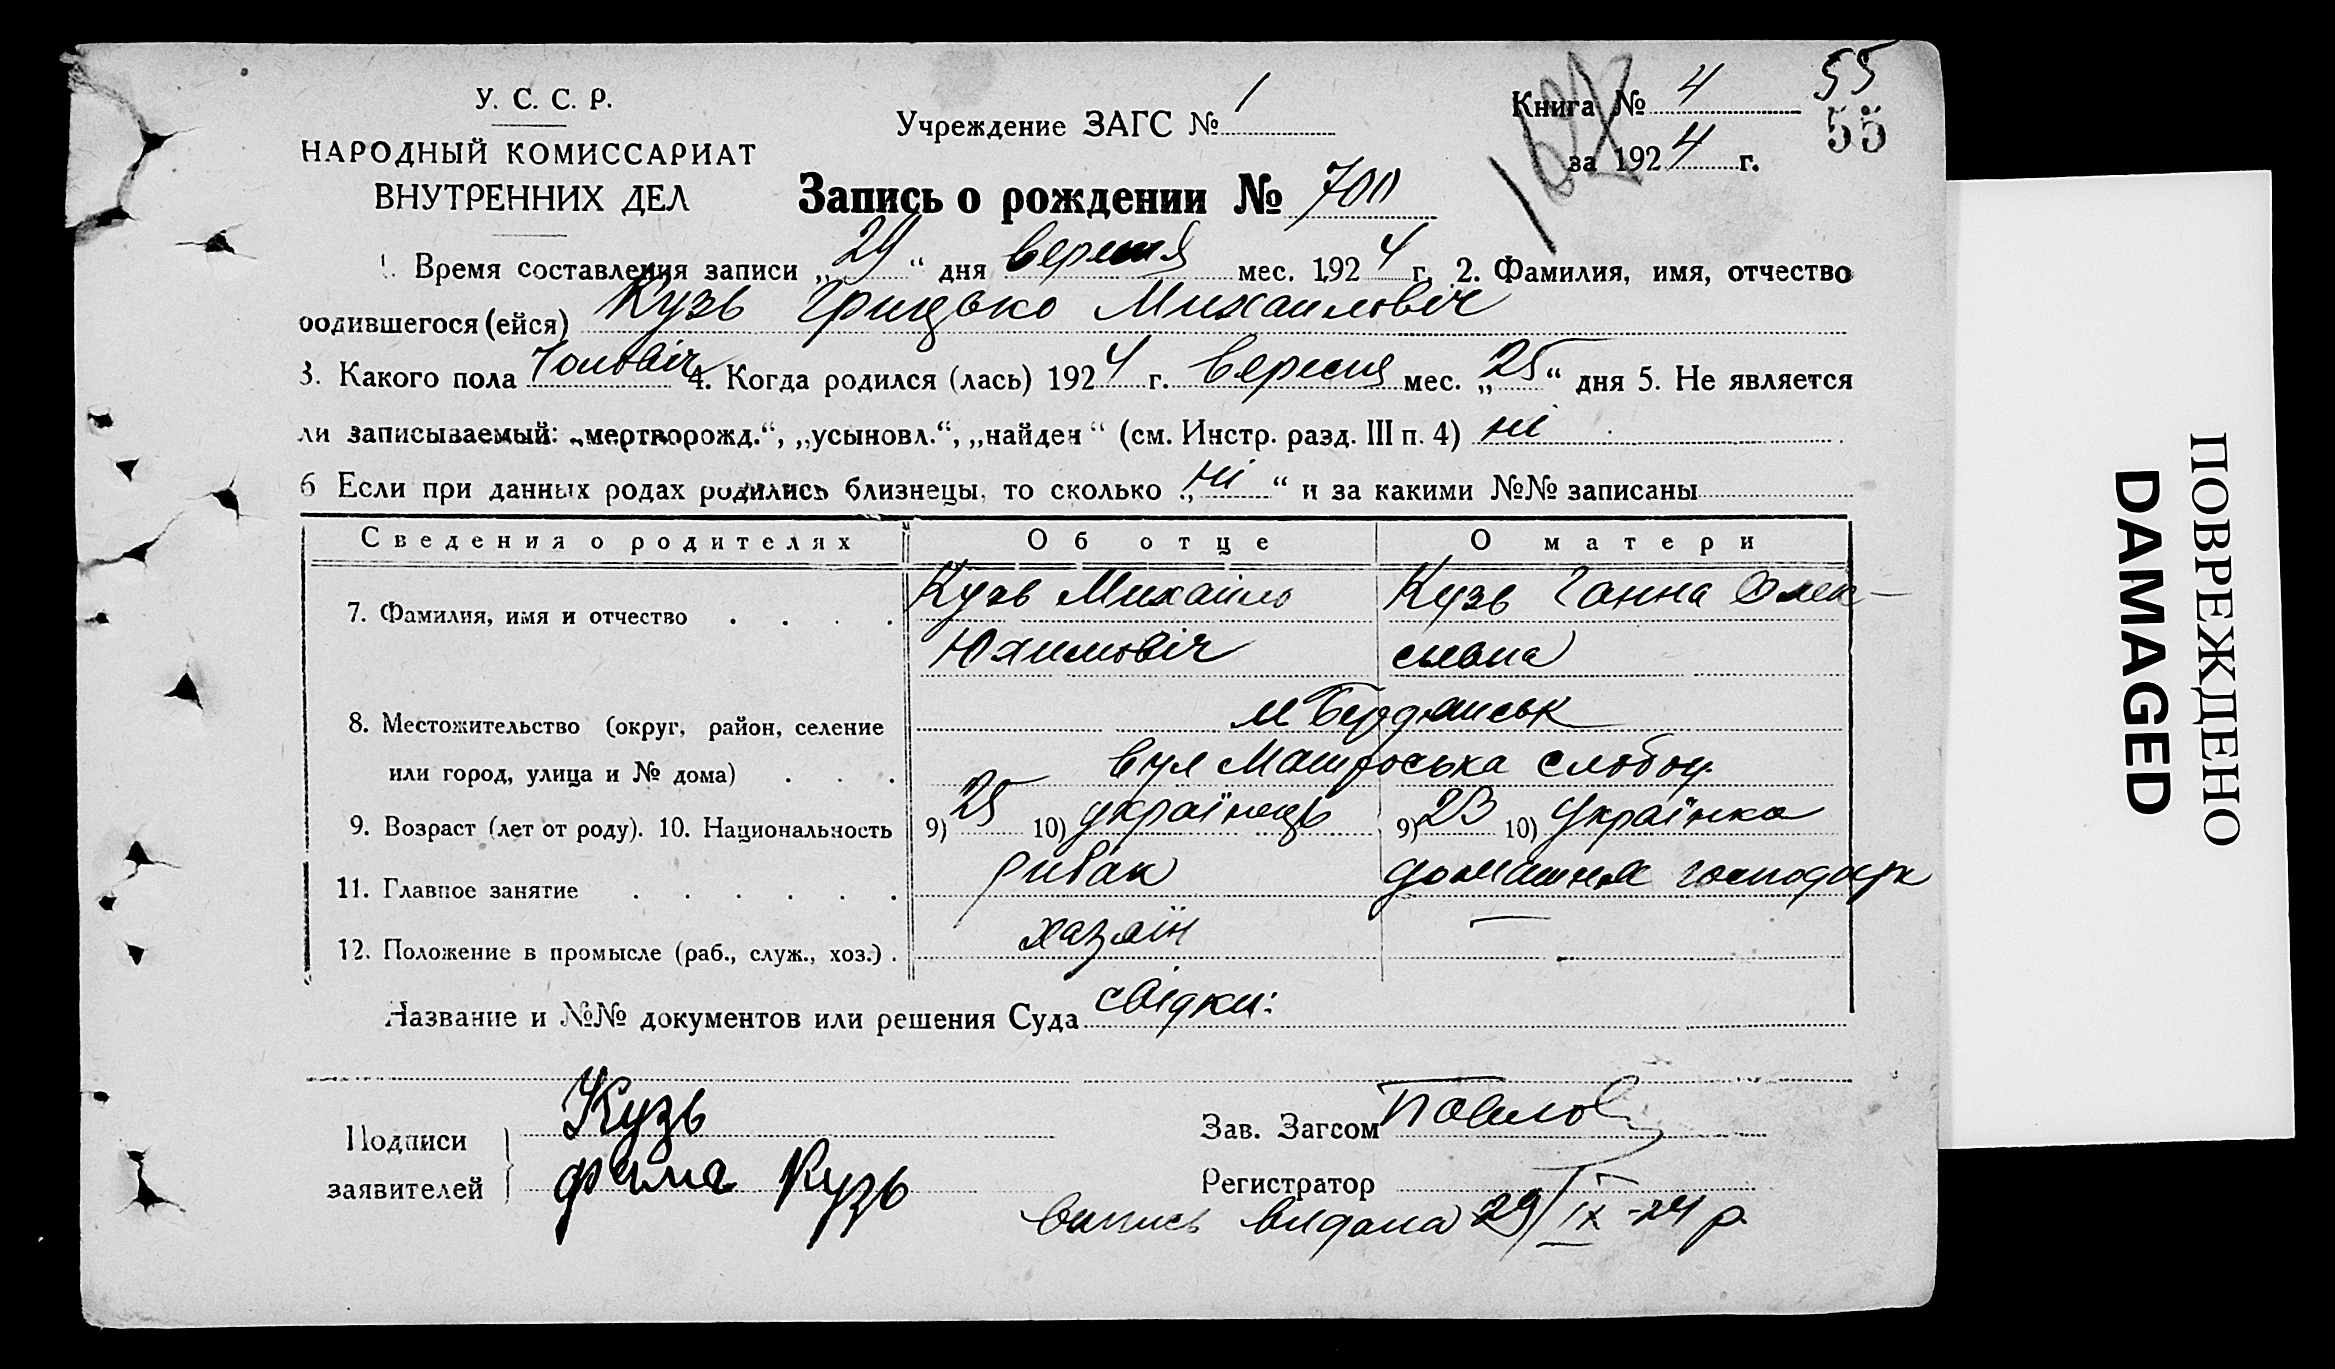 У. С. С. Р.
НАРОДНЫЙ КОМИССАРИАТ
ВНУТРЕННИХ ДЕЛ
Учреждение ЗАГС № 1
Книга № 4
за 1924 г.
55
55
Запись о рождении № 700
1. Время составления записи „29“ дня вересня мес. 1924 г. 2. Фамилия, имя, отчество
родившегося (ейся) Кузь Грицько Михаилович
3. Какого пола Чоловіч 4. Когда родился (лась) 1924 г. вересня мес. „25“ дня 5. Не является
ли записываемый: „мертворожд.“, „усыновл.“, „найден“ (см. Инстр. разд. III п. 4) ні
6 Если при данных родах родились близнецы, то сколько „ні“ и за какими №№ записаны
Сведения о родителях Об отце О матери
7. Фамилия, имя и отчество Кузь Михаило Кузь Ганна Олек-
Юхимовіч сіивна
8. Местожительство (округ, район, селение м Бердянськ
или город, улица и № дома) вул Матроська слобод.
9. Возраст (лет от роду). 10. Национальность 9) 25 10) українець 9) 23 10) Українка
11. Главное занятие рибак домашня господарк
12. Положение в промысле (раб., служ., хоз.) хазяін —
Название и №№ документов или решения Суда свідки:
Подписи Кузь
заявителей фима Кузь
Зав. Загсом Павлов
Регистратор
випись видана 29/IX-24 р.
ПОВРЕЖДЕНО
DAMAGED